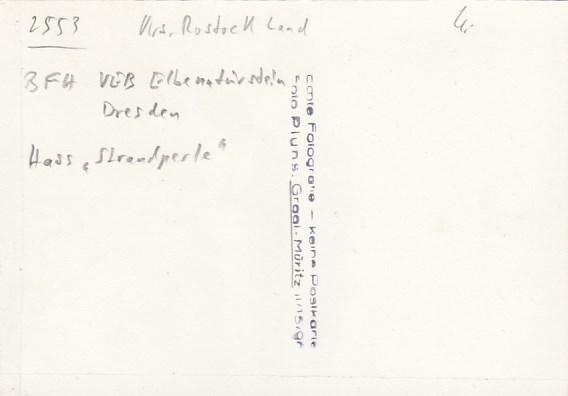 2553 Krs. Rostock Land 4,-
BFH VEB Elbenaturstein
Dresden
Haus „Strandperle“
Fotografie – keine Postkarte
Pluns. Graal-Müritz